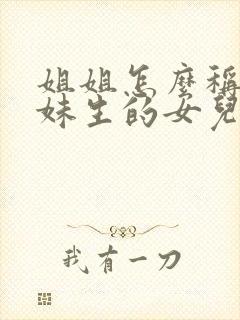 姐姐怎麼稱
妹生的女兒
我有一刀